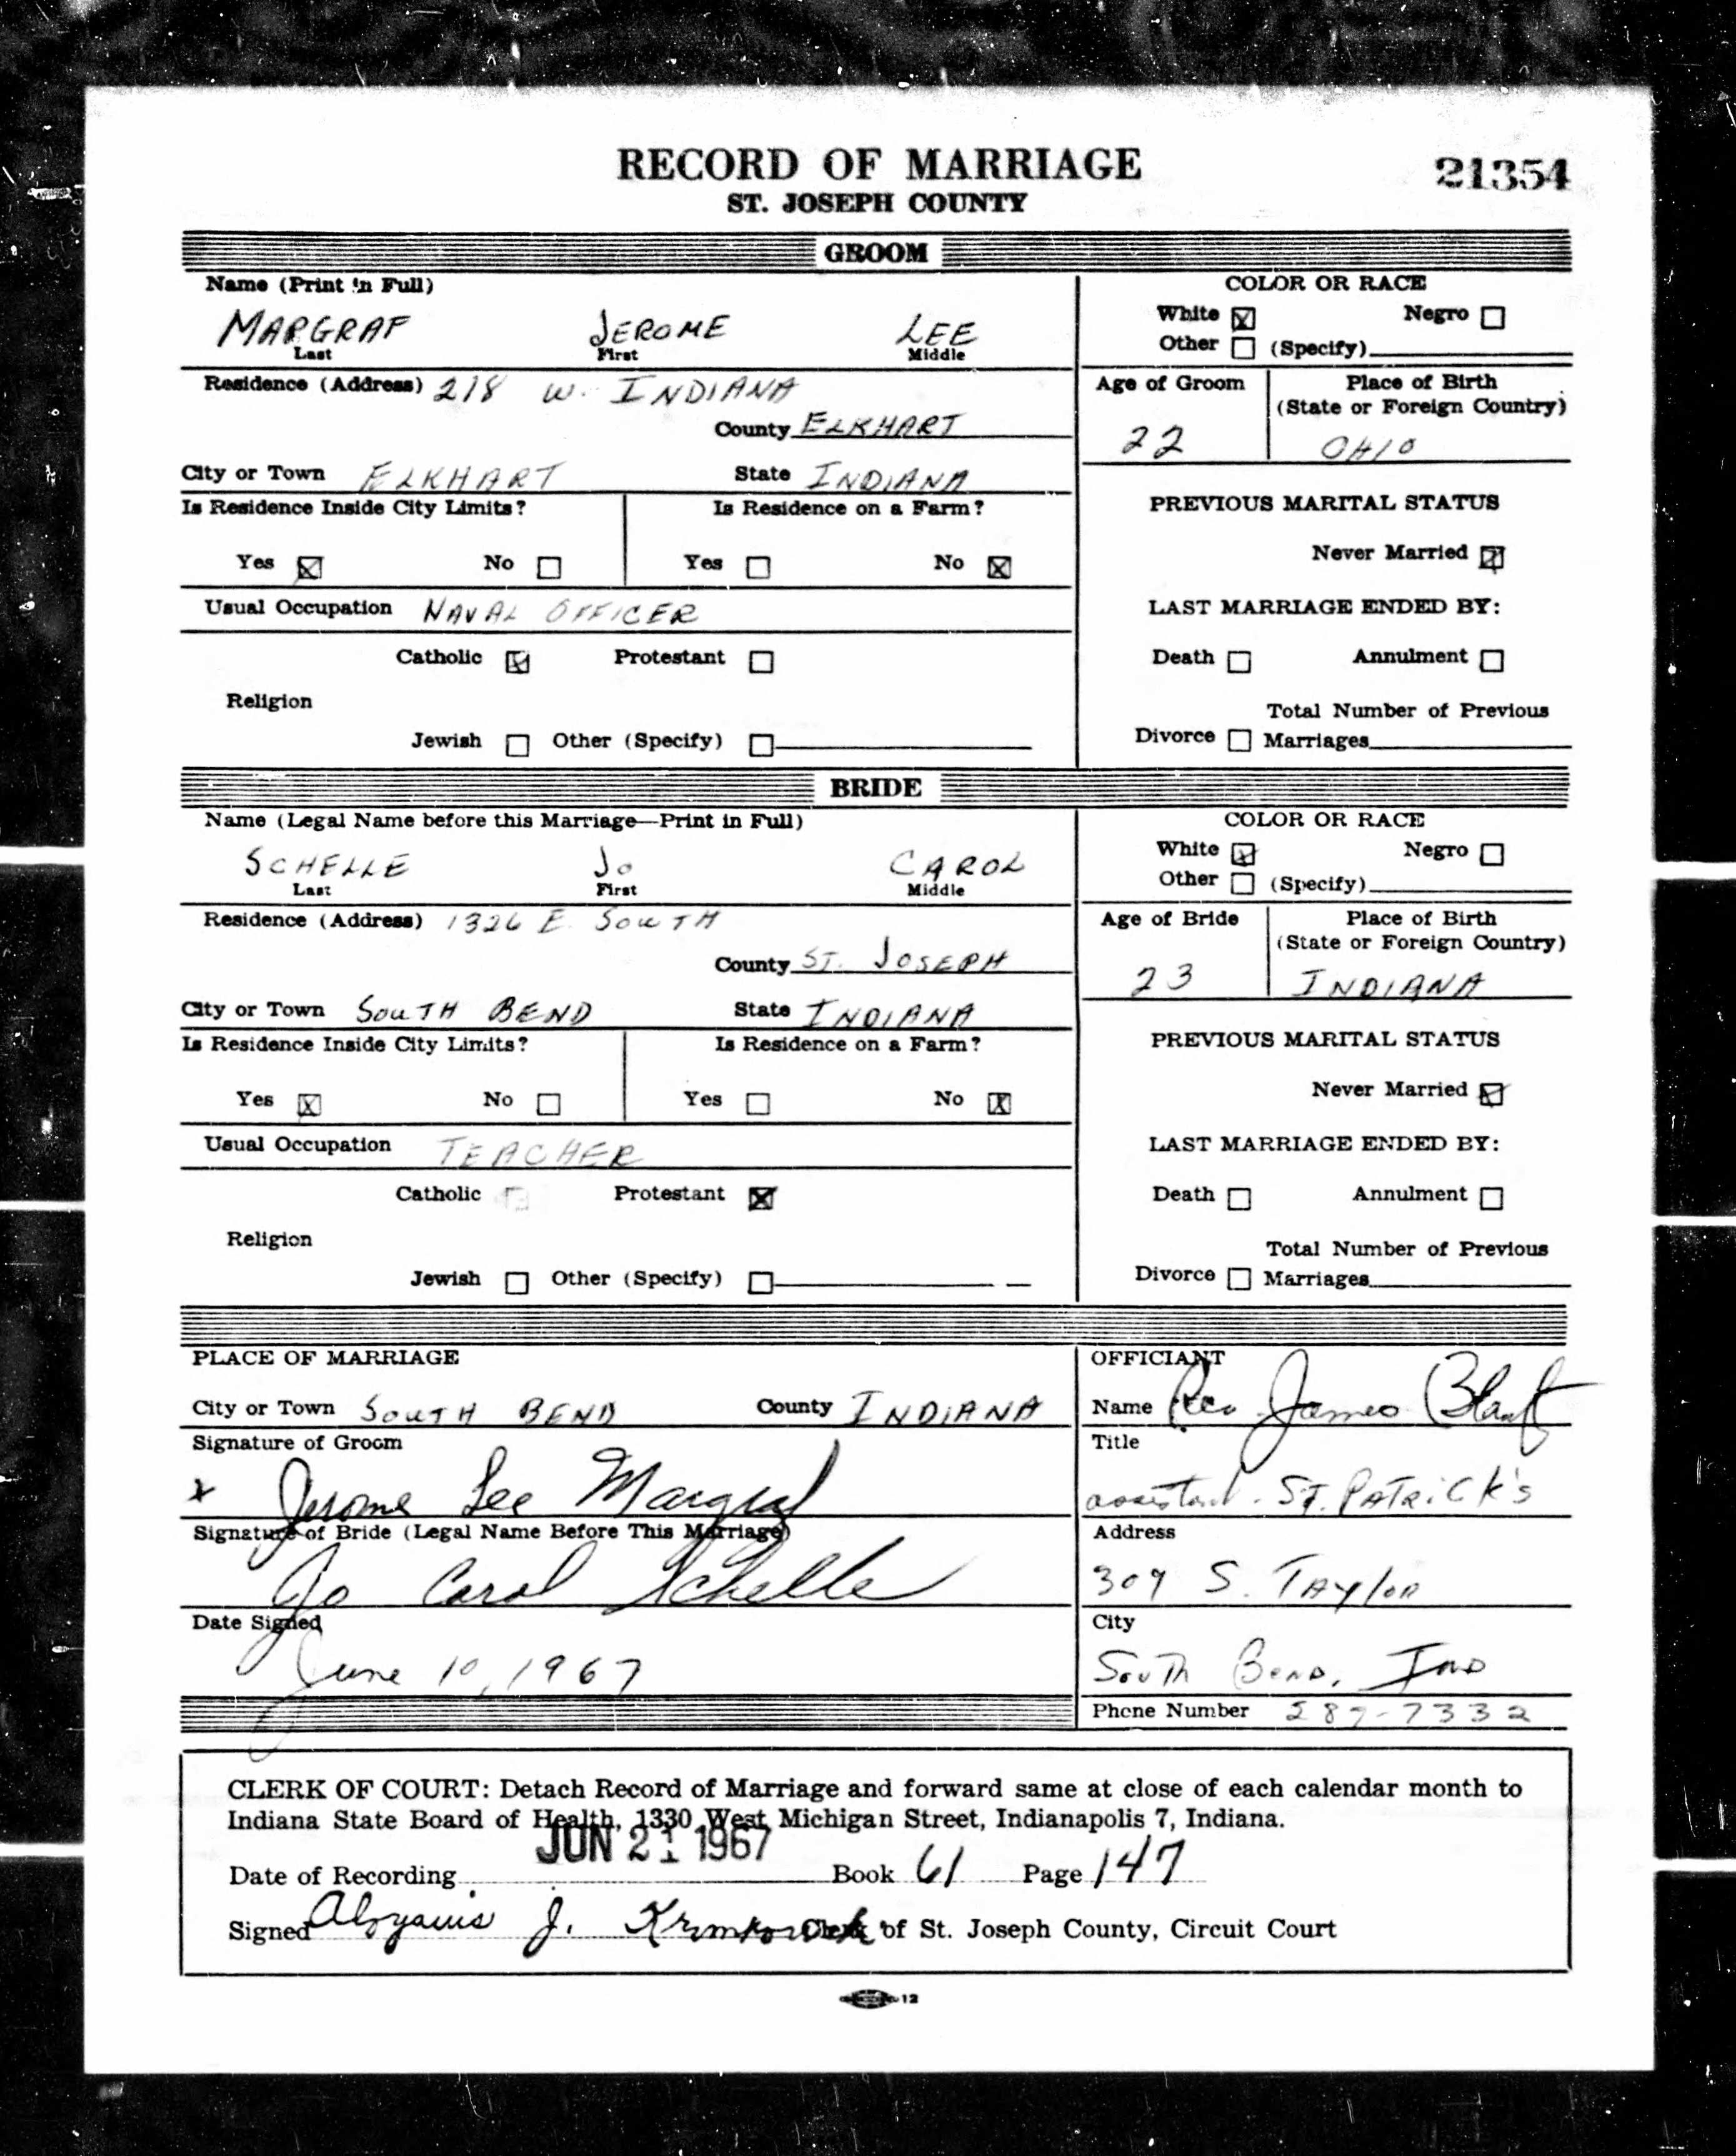 RECORD OF MARRIAGE
21354
ST. JOSEPH COUNTY
GROOM
Name (Print in Full)
MARGRAF JEROME LEE
Last First Middle
COLOR OR RACE
White Negro
Other (Specify)
Residence (Address) 218 W. INDIANA
County ELKHART
City or Town ELKHART State INDIANA
Age of Groom
22
Place of Birth
(State or Foreign Country)
OHIO
Is Residence Inside City Limits?
Yes No
Is Residence on a Farm?
Yes No
PREVIOUS MARITAL STATUS
Never Married
Usual Occupation NAVAL OFFICER
LAST MARRIAGE ENDED BY:
Catholic Protestant
Religion
Jewish Other (Specify)
Death Annulment
Total Number of Previous
Divorce Marriages
BRIDE
Name (Legal Name before this Marriage—Print in Full)
SCHELLE JO CAROL
Last First Middle
COLOR OR RACE
White Negro
Other (Specify)
Residence (Address) 1326 E. SOUTH
County ST. JOSEPH
City or Town SOUTH BEND State INDIANA
Age of Bride
23
Place of Birth
(State or Foreign Country)
INDIANA
Is Residence Inside City Limits?
Yes No
Is Residence on a Farm?
Yes No
PREVIOUS MARITAL STATUS
Never Married
Usual Occupation TEACHER
LAST MARRIAGE ENDED BY:
Catholic Protestant
Religion
Jewish Other (Specify)
Death Annulment
Total Number of Previous
Divorce Marriages
PLACE OF MARRIAGE
City or Town SOUTH BEND County INDIANA
Signature of Groom
x Jerome Lee Margraf
Signature of Bride (Legal Name Before This Marriage)
Jo Carol Schelle
Date Signed
June 10, 1967
OFFICIANT
Name Rev James
Title
assistant. ST. PATRICK'S
Address
309 S. TAYLOR
City
South Bend, Ind
Phone Number 287-7332
CLERK OF COURT: Detach Record of Marriage and forward same at close of each calendar month to
Indiana State Board of Health, 1330 West Michigan Street, Indianapolis 7, Indiana.
JUN 21 1967
Date of Recording Book 61 Page 147
Signed Aloysius J. Clerk of St. Joseph County, Circuit Court
12